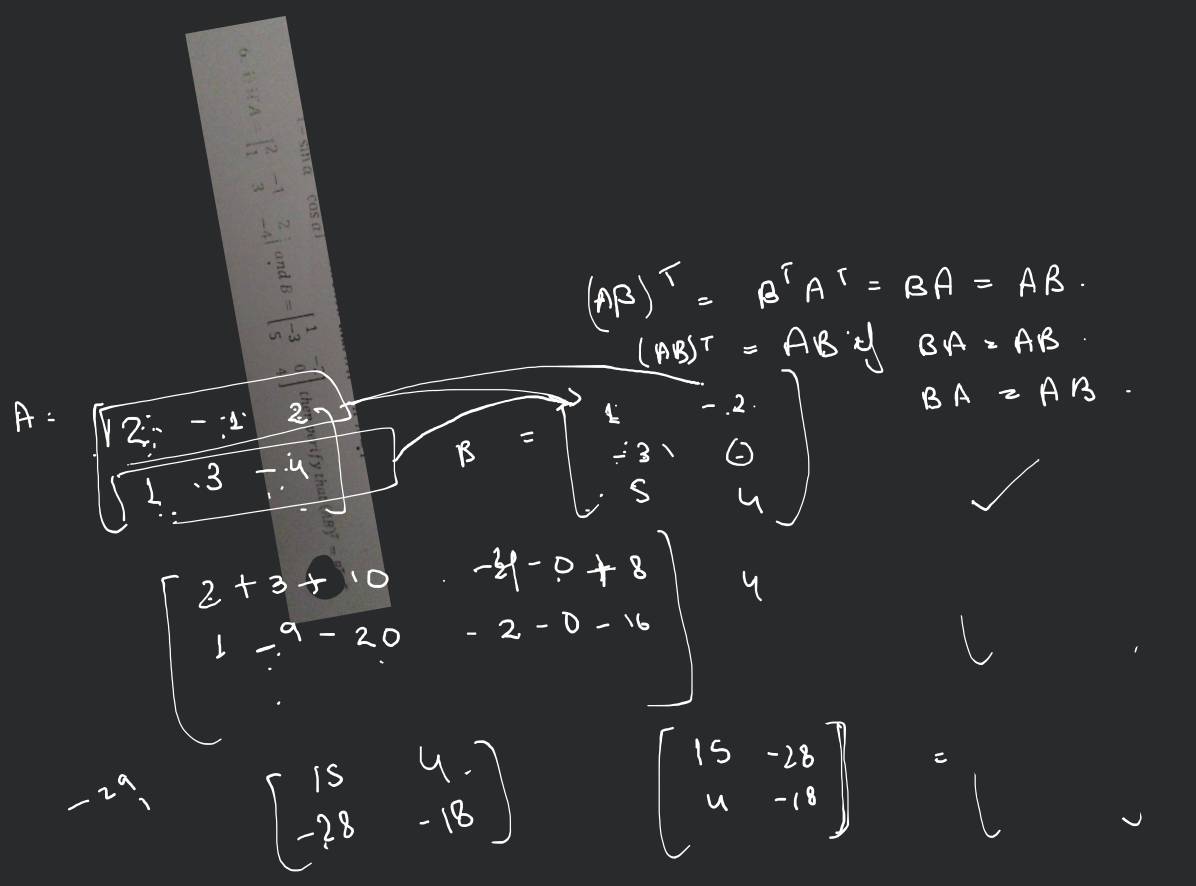 1-sin α cos α
6. i) If A = [2 -1 2
1 3 -4] and B = [1 -2
-3 0
5 4] then verify that (AB)' = B'
(AB)ᵀ = BᵀAᵀ = BA = AB.
(AB)ᵀ = AB if BA = AB.
BA = AB.
A = [2 -1 2
1 3 -4]
B = [1 -2
-3 0
5 4]
[2 + 3 + 10 -4 - 0 + 8
1 - 9 - 20 - 2 - 0 - 16]
4
-29,
[15 4
-28 -18]
[15 -28
4 -18] =